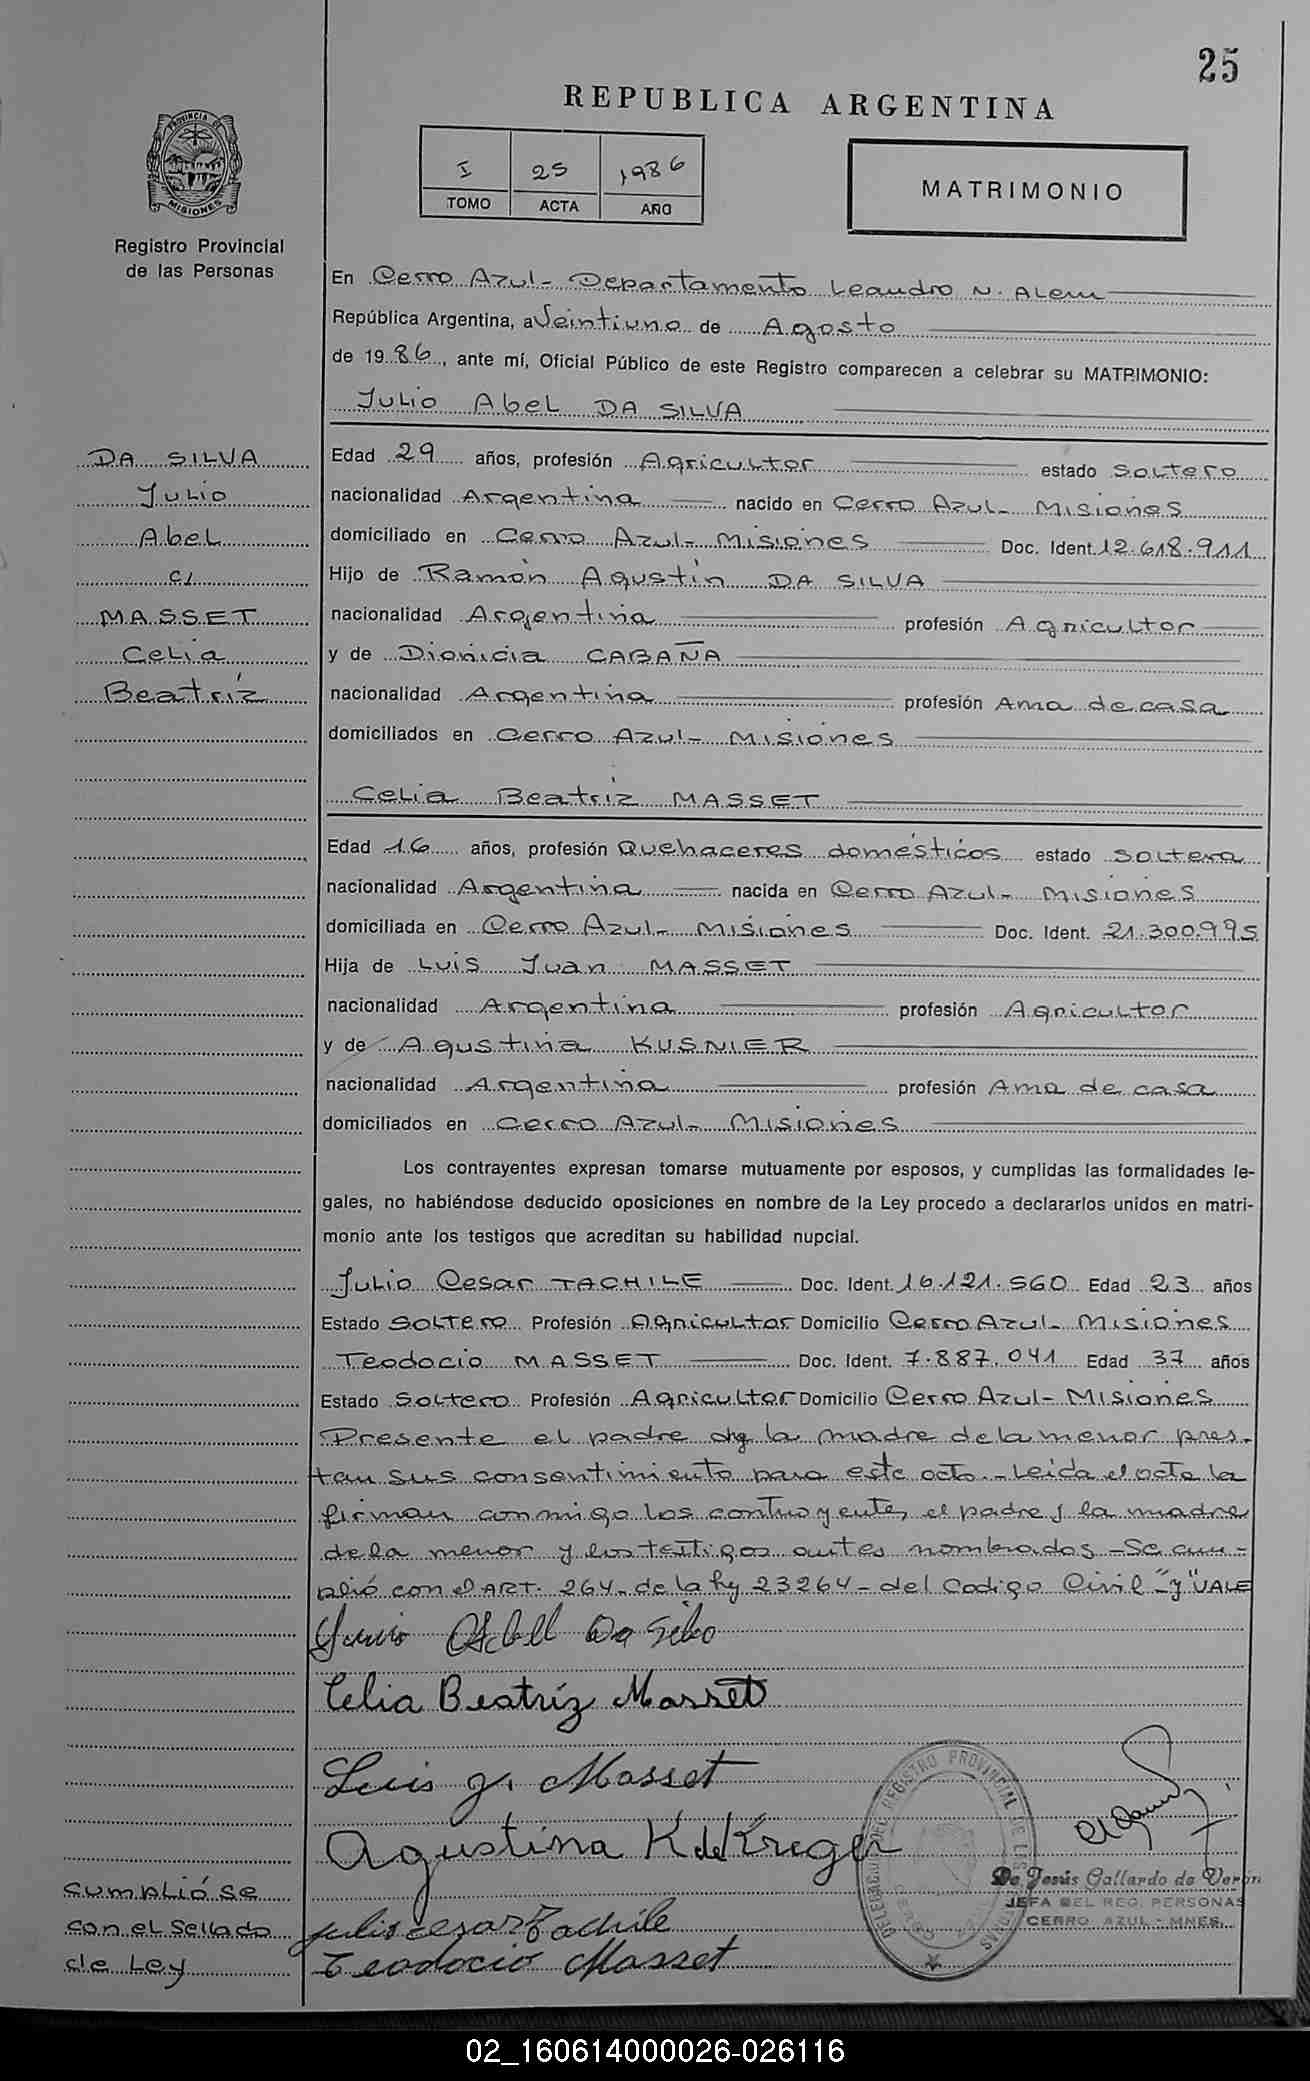 25
REPUBLICA ARGENTINA
PROVINCIA DE
MISIONES
Registro Provincial
de las Personas
I 25 1986
TOMO ACTA AÑO
MATRIMONIO
En Cerro Azul- Departamento Leandro N. Alem
República Argentina, a Veintiuno de Agosto
de 1986, ante mí, Oficial Público de este Registro comparecen a celebrar su MATRIMONIO:
Julio Abel DA SILVA
DA SILVA
Julio
Abel
c/
MASSET
Celia
Beatriz
Edad 29 años, profesión Agricultor estado soltero
nacionalidad Argentina nacido en Cerro Azul- Misiones
domiciliado en Cerro Azul- Misiones Doc. Ident. 12.618.911
Hijo de Ramón Agustin DA SILVA
nacionalidad Argentina profesión Agricultor
y de Dionicia CABAÑA
nacionalidad Argentina profesión Ama de casa
domiciliados en Cerro Azul- Misiones
Celia Beatriz MASSET
Edad 16 años, profesión Quehaceres domésticos estado soltera
nacionalidad Argentina nacida en Cerro Azul- Misiones
domiciliada en Cerro Azul- Misiones Doc. Ident. 21.300.995
Hija de Luis Juan MASSET
nacionalidad Argentina profesión Agricultor
y de Agustina KUSNIER
nacionalidad Argentina profesión Ama de casa
domiciliados en Cerro Azul- Misiones
Los contrayentes expresan tomarse mutuamente por esposos, y cumplidas las formalidades le-
gales, no habiéndose deducido oposiciones en nombre de la Ley procedo a declararlos unidos en matri-
monio ante los testigos que acreditan su habilidad nupcial.
Julio Cesar TACHILE Doc. Ident. 16.121.560 Edad 23 años
Estado Soltero Profesión Agricultor Domicilio Cerro Azul- Misiones
Teodocio MASSET Doc. Ident. 7.887.041 Edad 37 años
Estado Soltero Profesión Agricultor Domicilio Cerro Azul- Misiones
Presente el padre y la madre de la menor pres-
tan sus consentimiento para este acto.- Leida el acta la
firman conmigo los contrayente, el padre y la madre
de la menor y los testigos antes nombrados -Se cum-
plió con el ART. 264- de la ley 23264- del Codigo Civil -"y" VALE
Julio Abell Da Silva
Celia Beatríz Masset
Luis J. Masset
Agustina K de Kreger
Julio Cesar Tachile
Teodocio Masset
cumplió se
con el Sellado
de Ley
DELEGACION DEL REGISTRO PROVINCIAL DE LAS PERSONAS
CERRO AZUL
De Jesús Gallardo de Verón
JEFA DEL REG. PERSONAS
CERRO AZUL - MNES.
02_160614000026-026116